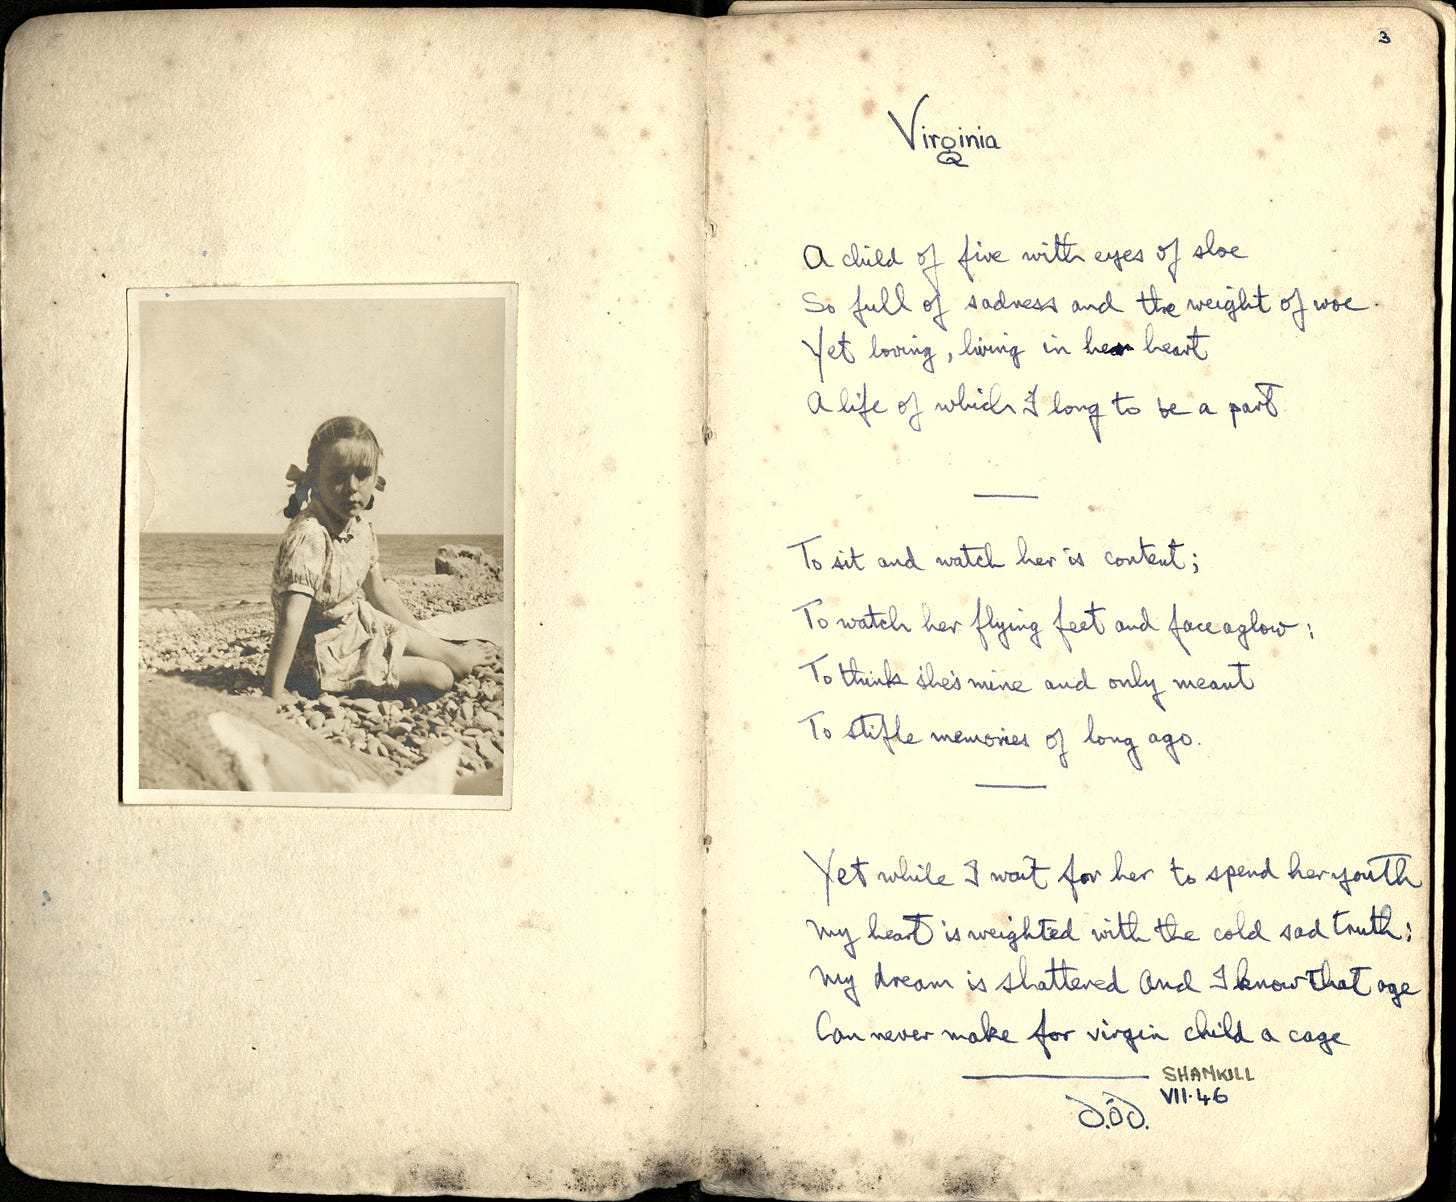 3
Virginia
A child of five with eyes of sloe
So full of sadness and the weight of woe.
Yet loving, living in her heart
A life of which I long to be a part
To sit and watch her is content;
To watch her flying feet and face aglow;
To think she's mine and only meant
To stifle memories of long ago.
Yet while I wait for her to spend her youth
My heart is weighted with the cold sad truth;
My dream is shattered And I know that age
Can never make for virgin child a cage
SHANKILL
VII·46
D.ÓD.